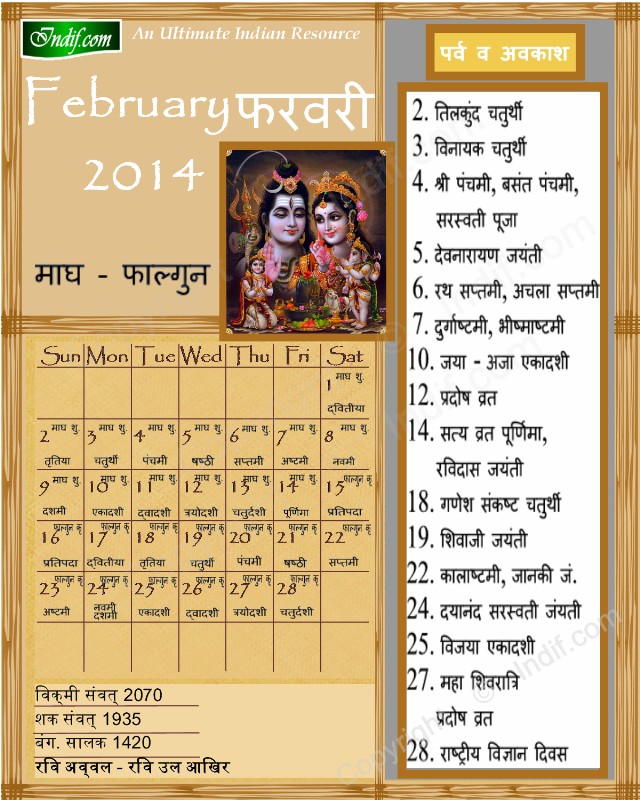 Indif.com
An Ultimate Indian Resource
February फरवरी
2014
माघ - फाल्गुन
Sun Mon Tue Wed Thu Fri Sat
1 माघ शु.
द्वितीया
2 माघ शु. 3 माघ शु. 4 माघ शु. 5 माघ शु. 6 माघ शु. 7 माघ शु. 8 माघ शु.
तृतिया चतुर्थी पंचमी षष्ठी सप्तमी अष्टमी नवमी
9 माघ शु. 10 माघ शु. 11 माघ शु. 12 माघ शु. 13 माघ शु. 14 माघ शु. 15 फाल्गुन कृ
दशमी एकादशी द्वादशी त्रयोदशी चतुर्दशी पूर्णिमा प्रतिपदा
16 फाल्गुन कृ 17 फाल्गुन कृ 18 फाल्गुन कृ 19 फाल्गुन कृ 20 फाल्गुन कृ 21 फाल्गुन कृ 22 फाल्गुन कृ
प्रतिपदा द्वितीया तृतिया चतुर्थी पंचमी षष्ठी सप्तमी
23 फाल्गुन कृ 24 फाल्गुन कृ 25 फाल्गुन कृ 26 फाल्गुन कृ 27 फाल्गुन कृ 28 फाल्गुन कृ
अष्टमी नवमी दशमी एकादशी द्वादशी त्रयोदशी चतुर्दशी
विक्रमी संवत् 2070
शक संवत् 1935
बंग. सालक 1420
रवि अव्वल - रवि उल आखिर
पर्व व अवकाश
2. तिलकुंद चतुर्थी
3. विनायक चतुर्थी
4. श्री पंचमी, बसंत पंचमी,
सरस्वती पूजा
5. देवनारायण जयंती
6. रथ सप्तमी, अचला सप्तमी
7. दुर्गाष्टमी, भीष्माष्टमी
10. जया - अजा एकादशी
12. प्रदोष व्रत
14. सत्य व्रत पूर्णिमा,
रविदास जयंती
18. गणेश संकष्ट चतुर्थी
19. शिवाजी जयंती
22. कालाष्टमी, जानकी जं.
24. दयानंद सरस्वती जंयती
25. विजया एकादशी
27. महा शिवरात्रि
प्रदोष व्रत
28. राष्ट्रीय विज्ञान दिवस
Copyright © Indif.com